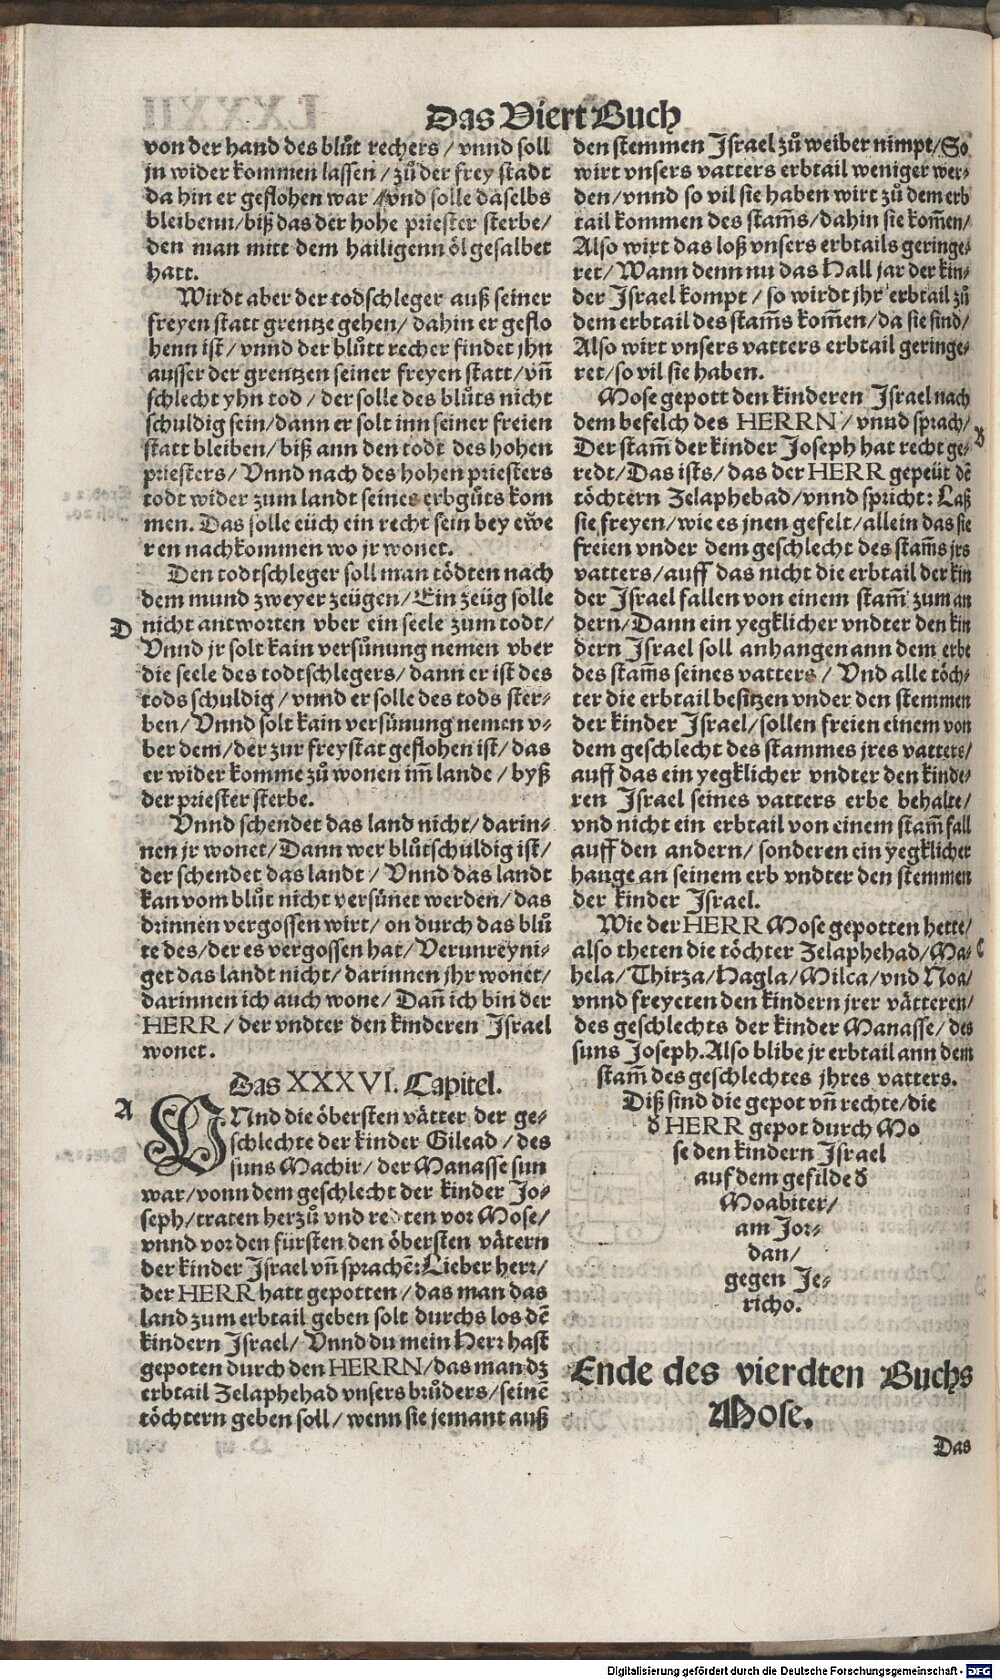 Das Viert Buch
von der hand des blůt rechers / vnnd soll
jn wider kommen lassen / zů der frey stadt
da hin er geflohen war / vnd solle daselbs
bleibenn / biß das der hohe priester sterbe /
den man mitt dem hailigenn öl gesalbet
hatt.
Wirdt aber der todschleger auß seiner
freyen statt grentze gehen / dahin er geflo
henn ist / vnnd der blůtt recher findet jhn
ausser der grentzen seiner freyen statt / vñ
schlecht yhn tod / der solle des blůts nicht
schuldig sein / dann er solt inn seiner freien
statt bleiben / biß ann den todt des hohen
priesters / Vnnd nach des hohen priesters
todt wider zum landt seines erbgůts kom
men. Das solle eüch ein recht sein bey eẅe
ren nachkommen wo jr wonet.
Den todtschleger soll man tödten nach
dem mund zweyer zeügen / Ein zeüg solle
D
nicht antworten vber ein seele zum todt /
Vnnd jr solt kain versünung nemen vber
die seele des todtschlegers / dann er ist des
tods schuldig / vnnd er solle des tods ster-
ben / Vnnd solt kain versünung nemen v-
ber dem / der zur freystat geflohen ist / das
er wider komme zů wonen im̃ lande / byß
der priester sterbe.
Vnnd schendet das land nicht / darin-
nen jr wonet / Dann wer blůtschuldig ist /
der schendet das landt / Vnnd das landt
kan vom blůt nicht versünet werden / das
drinnen vergossen wirt / on durch das blů
te des / der es vergossen hat / Verunreyni-
get das landt nicht / darinnen jhr wonet /
darinnen ich auch wone / Dañ ich bin der
HERR / der vndter den kinderen Israel
wonet.
Das XXXVI. Capitel.
A
VNnd die öbersten vätter der ge-
schlechte der kinder Gilead / des
suns Machir / der Manasse sun
war / vonn dem geschlecht der kinder Jo-
seph / traten herzů vnd redten vor Mose /
vnnd vor den fürsten den öbersten vätern
der kinder Israel vñ sprachẽ: Lieber herr /
der HERR hatt gepotten / das man das
land zum erbtail geben solt durchs los dẽ
kindern Israel / Vnnd du mein Herr hast
gepoten durch den HERRN / das man dz
erbtail Zelaphehad vnsers brůders / seinẽ
töchtern geben soll / wenn sie jemant auß
den stemmen Israel zů weiber nimpt / So
wirt vnsers vatters erbtail weniger wer-
den / vnnd so vil sie haben wirt zů dem erb
tail kommen des stam̃s / dahin sie kom̃en /
Also wirt das loß vnsers erbtails geringe-
ret / Wann denn nu das Hall jar der kin-
der Israel kompt / so wirdt jhr erbtail zů
dem erbtail des stam̃s kom̃en / da sie sind /
Also wirt vnsers vatters erbtail geringe-
ret / so vil sie haben.
Mose gepott den kinderen Israel nach
dem befelch des HERRN / vnnd sprach /
B
Der stam̃ der kinder Joseph hat recht ge-
redt / Das ists / das der HERR gepeüt dẽ
töchtern Zelaphehad / vnnd spricht: Laß
sie freyen / wie es jnen gefelt / allein das sie
freien vnder dem geschlecht des stam̃s jrs
vatters / auff das nicht die erbtail der kin
der Israel fallen von einem stam̃ zum an
dern / Dann ein yegklicher vndter den kin
dern Israel soll anhangen ann dem erbe
des stam̃s seines vatters / Vnd alle töch-
ter die erbtail besitzen vnder den stemmen
der kinder Israel / sollen freien einem von
dem geschlecht des stammes jres vatters /
auff das ein yegklicher vndter den kinde-
ren Israel seines vatters erbe behalte /
vnd nicht ein erbtail von einem stam̃ fall
auff den andern / sonderen ein yegklicher
hange an seinem erb vndter den stemmen
der kinder Israel.
Wie der HERR Mose gepotten hette /
C
also theten die töchter Zelaphehad / Ma-
hela / Thirza / Hagla / Milca / vnd Noa /
vnnd freyeten den kindern jrer vätteren /
des geschlechts der kinder Manasse / des
suns Joseph. Also blibe jr erbtail ann dem
stam̃ des geschlechtes jhres vatters.
Diß sind die gepot vñ rechte / die
d HERR gepot durch Mo
se den kindern Israel
auf dem gefilde d
Moabiter /
am Jor-
dan /
gegen Je-
richo.
Ende des vierdten Buchs
Mose.
Das
Digitalisierung gefördert durch die Deutsche Forschungsgemeinschaft - DFG